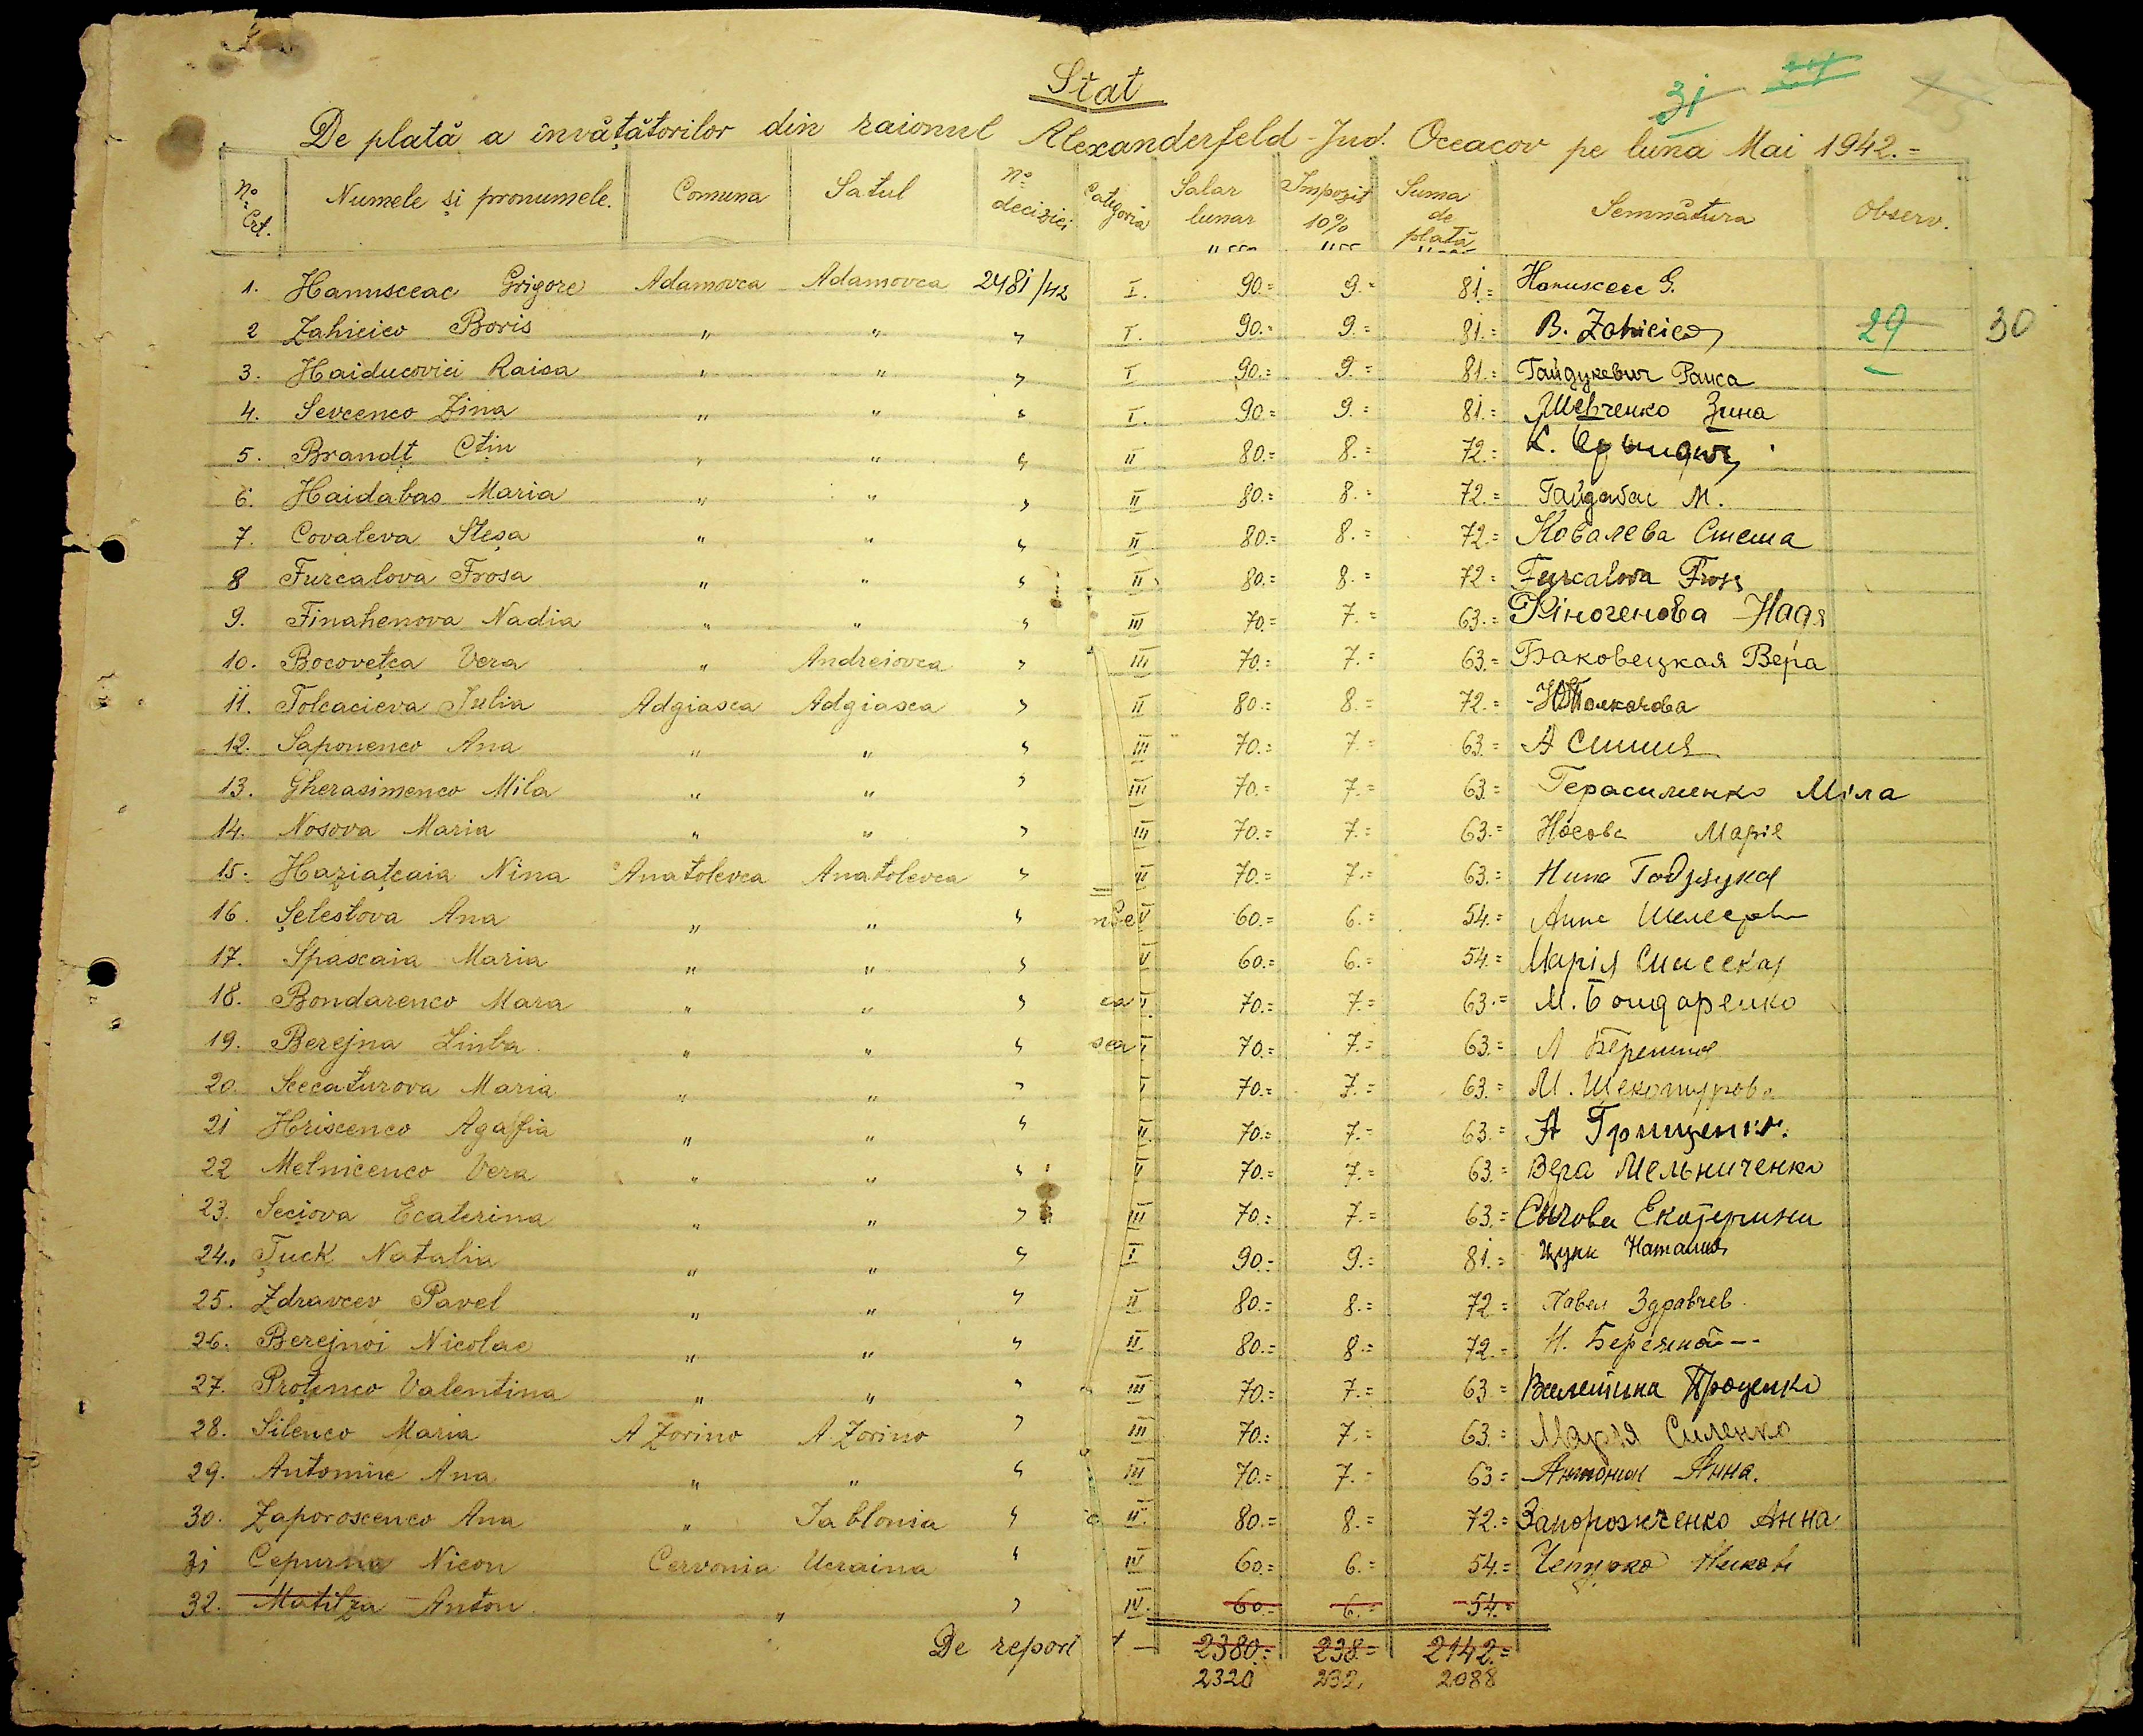 Stat
31
De plată a învățătorilor din raionul Alexanderfeld - Jud. Oceacov pe luna Mai 1942.=
No Crt. Numele și pronumele. Comuna Satul No deciziei Categoria Salar lunar Impozit 10% Suma de plată Semnătura Observ.
1. Hanusceac Grigore Adamovca Adamovca 2481/42 I. 90.= 9.= 81.= Hanusceac G.
2 Zahicico Boris " " " I. 90.= 9.= 81.= B. Zahicico 29 30
3. Haiducovici Raisa " " " I 90.= 9.= 81.= Гайдукевич Раиса
4. Sevcenco Zina " " " I. 90.= 9.= 81.= Шевченко Зина
5. Brandt Ctin " " " II 80.= 8.= 72.= К.
6. Haidabas Maria " " " II 80.= 8.= 72.= Гайдабас М.
7. Covaleva Steșa " " " II 80.= 8.= 72.= Ковалева Стеша
8 Furcalova Frosa " " " II 80.= 8.= 72.= Furcalova Frosa
9. Finahenova Nadia " " " III 70.= 7.= 63.= Фіногенова Надя
10. Bocovețca Vera " Andreiovca " III 70.= 7.= 63.= Баковецкая Вера
11. Tolcacieva Iulia Adgiasca Adgiasca " II 80.= 8.= 72.= Ю Толкачова
12. Saponenco Ana " " " III 70.= 7.= 63.= А
13. Gherasimenco Mila " " " III 70.= 7.= 63.= Герасименко Міла
14. Nosova Maria " " " III 70.= 7.= 63.= Носова Марія
15. Haziațcaia Nina Anatolevca Anatolevca " III 70.= 7.= 63.= Нина
16. Șelestova Ana " " " 60.= 6.= 54.= Анна
17. Spascaia Maria " " " 60.= 6.= 54.= Марія Спасская
18. Bondarenco Mara " " " 70.= 7.= 63.= М. Бондаренко
19. Berejna Linba " " " 70.= 7.= 63.= Л Бережная
20. Scecaturova Maria " " " 70.= 7.= 63.= М. Щекотурова
21 Hriscenco Agafia " " " 70.= 7.= 63.= А Грищенко.
22 Melnicenco Vera " " " 70.= 7.= 63.= Вера Мельниченко
23. Seciova Ecaterina " " " III 70.= 7.= 63.= Сичова Екатерина
24. Țuck Natalia " " " I 90.= 9.= 81.= Цукк Наталия
25. Zdravcev Pavel " " " II 80.= 8.= 72.= Павел Здравчев
26. Berejnoi Nicolae " " " II 80.= 8.= 72.= Н. Бережной
27. Proțenco Valentina " " " III 70.= 7.= 63.= Валентина Проценко
28. Silenco Maria A Zorino A Zorino " III 70.= 7.= 63.= Марія Силенко
29. Antoniuc Ana " " " III 70.= 7.= 63.= Антонюк Анна.
30. Zaporoscenco Ana " Iablonia " II. 80.= 8.= 72.= Запорожченко Анна
31 Cepurna Nicon Cervonia Ucraina " IV 60.= 6.= 54.=
32. Matitza Anton " " IV. 60.= 6.= 54.=
De report 2380.= 238.= 2142.=
2320 232. 2088